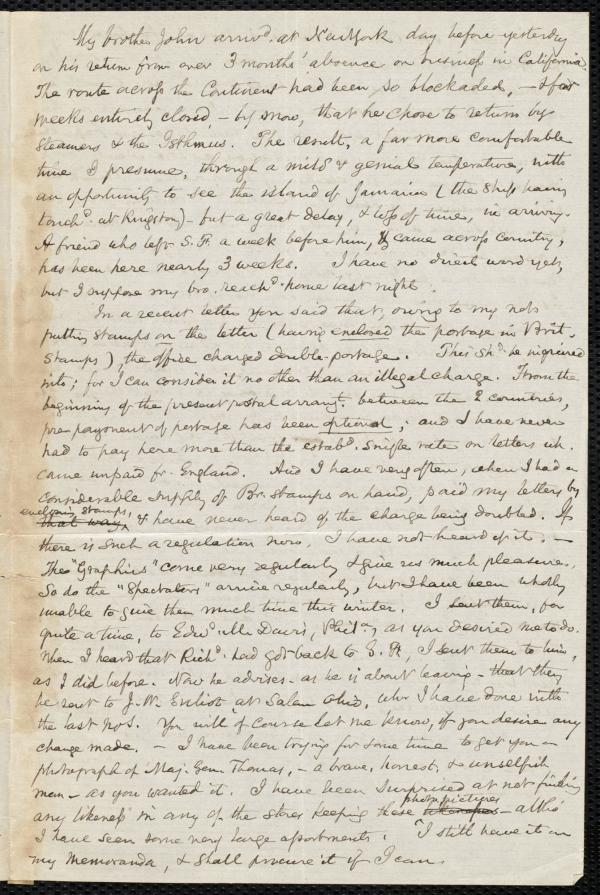 My brother John arriv'd. at New York day before yesterday
on his return from over 3 months' absence on business in California.
The route across the Continent had been so blockaded, — & for
weeks entirely closed, — by snow, that he chose to return by
Steamers & the Isthmus. The result, a far more comfortable
time I presume, through a mild & genial temperature, with
an opportunity to see the island of Jamaica (the ship having
touchd. at Kingston) — but a great delay, & loss of time, in arriving.
A friend who left S.F. a week before him, & came across country,
has been here nearly 3 weeks. I have no direct word yet,
but I suppose my bro. reachd. home last night.
In a recent letter you said that, owing to my not
putting stamps on the letter (having enclosed the postage in Brit.
Stamps), the office charged double-postage. This shd. be inquired
into; for I can consider it no other than an illegal charge. From the
beginning of the present postal arrangt. between the 2 countries,
pre payment of postage has been optional; and I have never
had to pay here more than the estabd. single rate on letters wh.
came unpaid fr. England. And I have very often, when I had a
considerable supply of Br. stamps on hand, paid my letters by
enclosing stamps,
that way, & have never heard of the charge being doubled. If
there is such a regulation now, I have not heard of it. —
The "Graphics" come very regularly & give us much pleasure.
So do the "Spectators" arrive regularly, but I have been wholly
unable to give them much time this winter. I sent them, for
quite a time, to Edwd. M. Davis, Phila., as you desired me to do.
When I heard that Richd. had got back to E. H, I sent them to him,
as I did before. Now he advises — as he is about leaving — that they
be sent to J. W. at Salem Ohio, wh. I have done with
the last No's. You will of course let me know, if you desire any
change made. — I have been trying for some time to get you a
photograph of Maj. Gen. Thomas, — a brave, honest, & unselfish
man — as you wanted it. I have been surprised at not finding
any likeness in any of the stores keeping these photo. pictures — altho'
I have seen some very large assortments. I still have it on
my Memoranda, & shall procure it if I can.